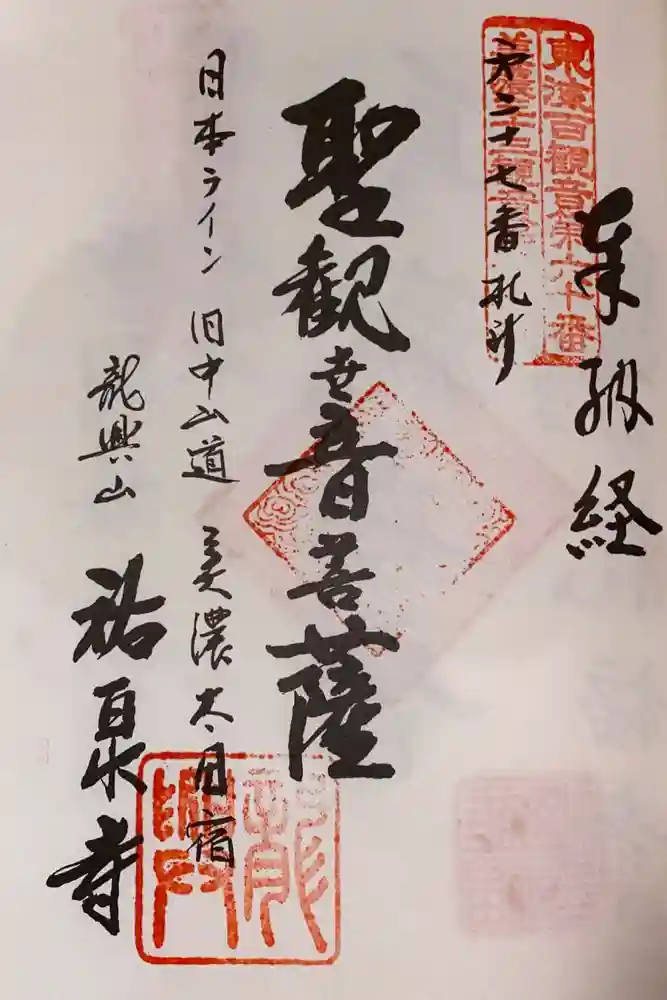 奉納経
東海百觀音第六十番
美濃三十三觀音
第二十七番札所
聖觀世音菩薩
日本ライン 旧中山道 美濃太田宿
龍興山 祐泉寺
龍興